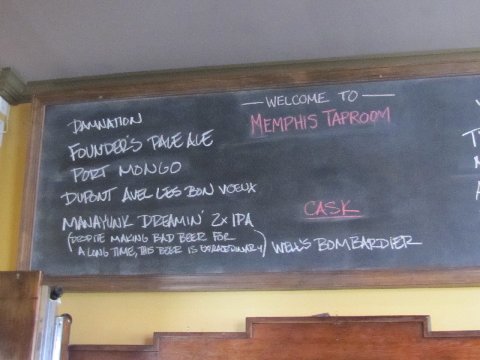 — WELCOME TO —
MEMPHIS TAPROOM
DAMNATION
FOUNDER'S PALE ALE
PORT MONGO
DUPONT AVEC LES BON VOEUX
MANAYUNK DREAMIN' 2X IPA
(DESPITE MAKING BAD BEER FOR
A LONG TIME, THIS BEER IS EXTRAORDINARY)
CASK
WELL'S BOMBARDIER